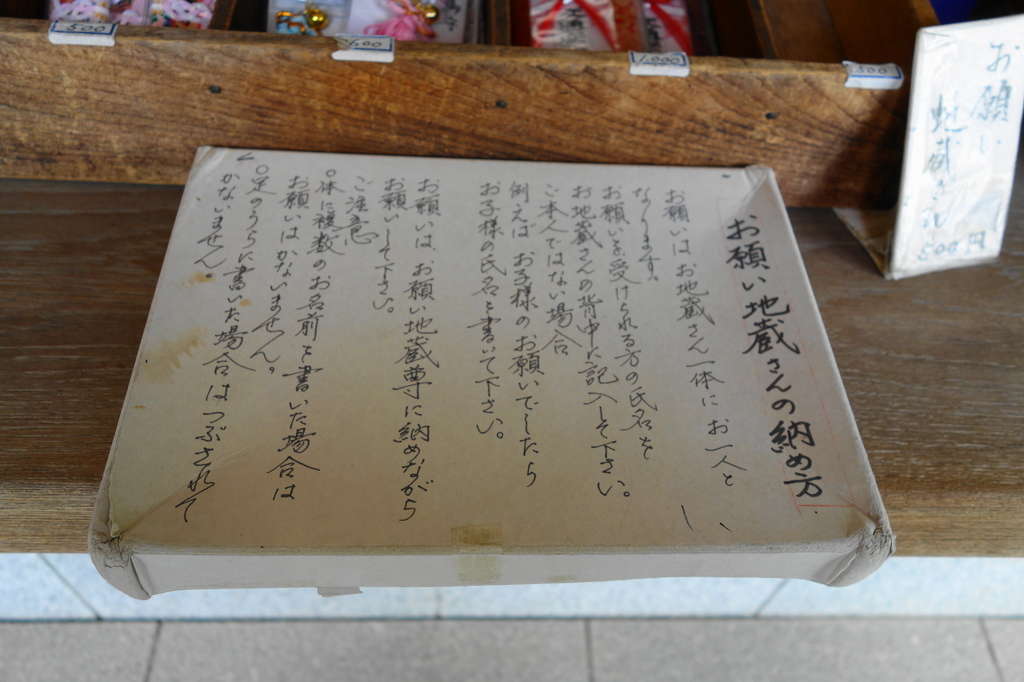 お願い地蔵さんの納め方
お願いはお地蔵さん一体にお一人と
なります。
お願いを受けられる方の氏名を
お地蔵さんの背中に記入して下さい。
ご本人ではない場合
例えばお子様のお願いでしたら
お子様の氏名を書いて下さい。
お願いは、お願い地蔵尊に納めながら
お願いして下さい。
ご注意
○体に複数のお名前を書いた場合は
お願いはかないません。
○足のうらに書いた場合はつぶされて
かないません。
お願い
500円
500
600
1,000
500